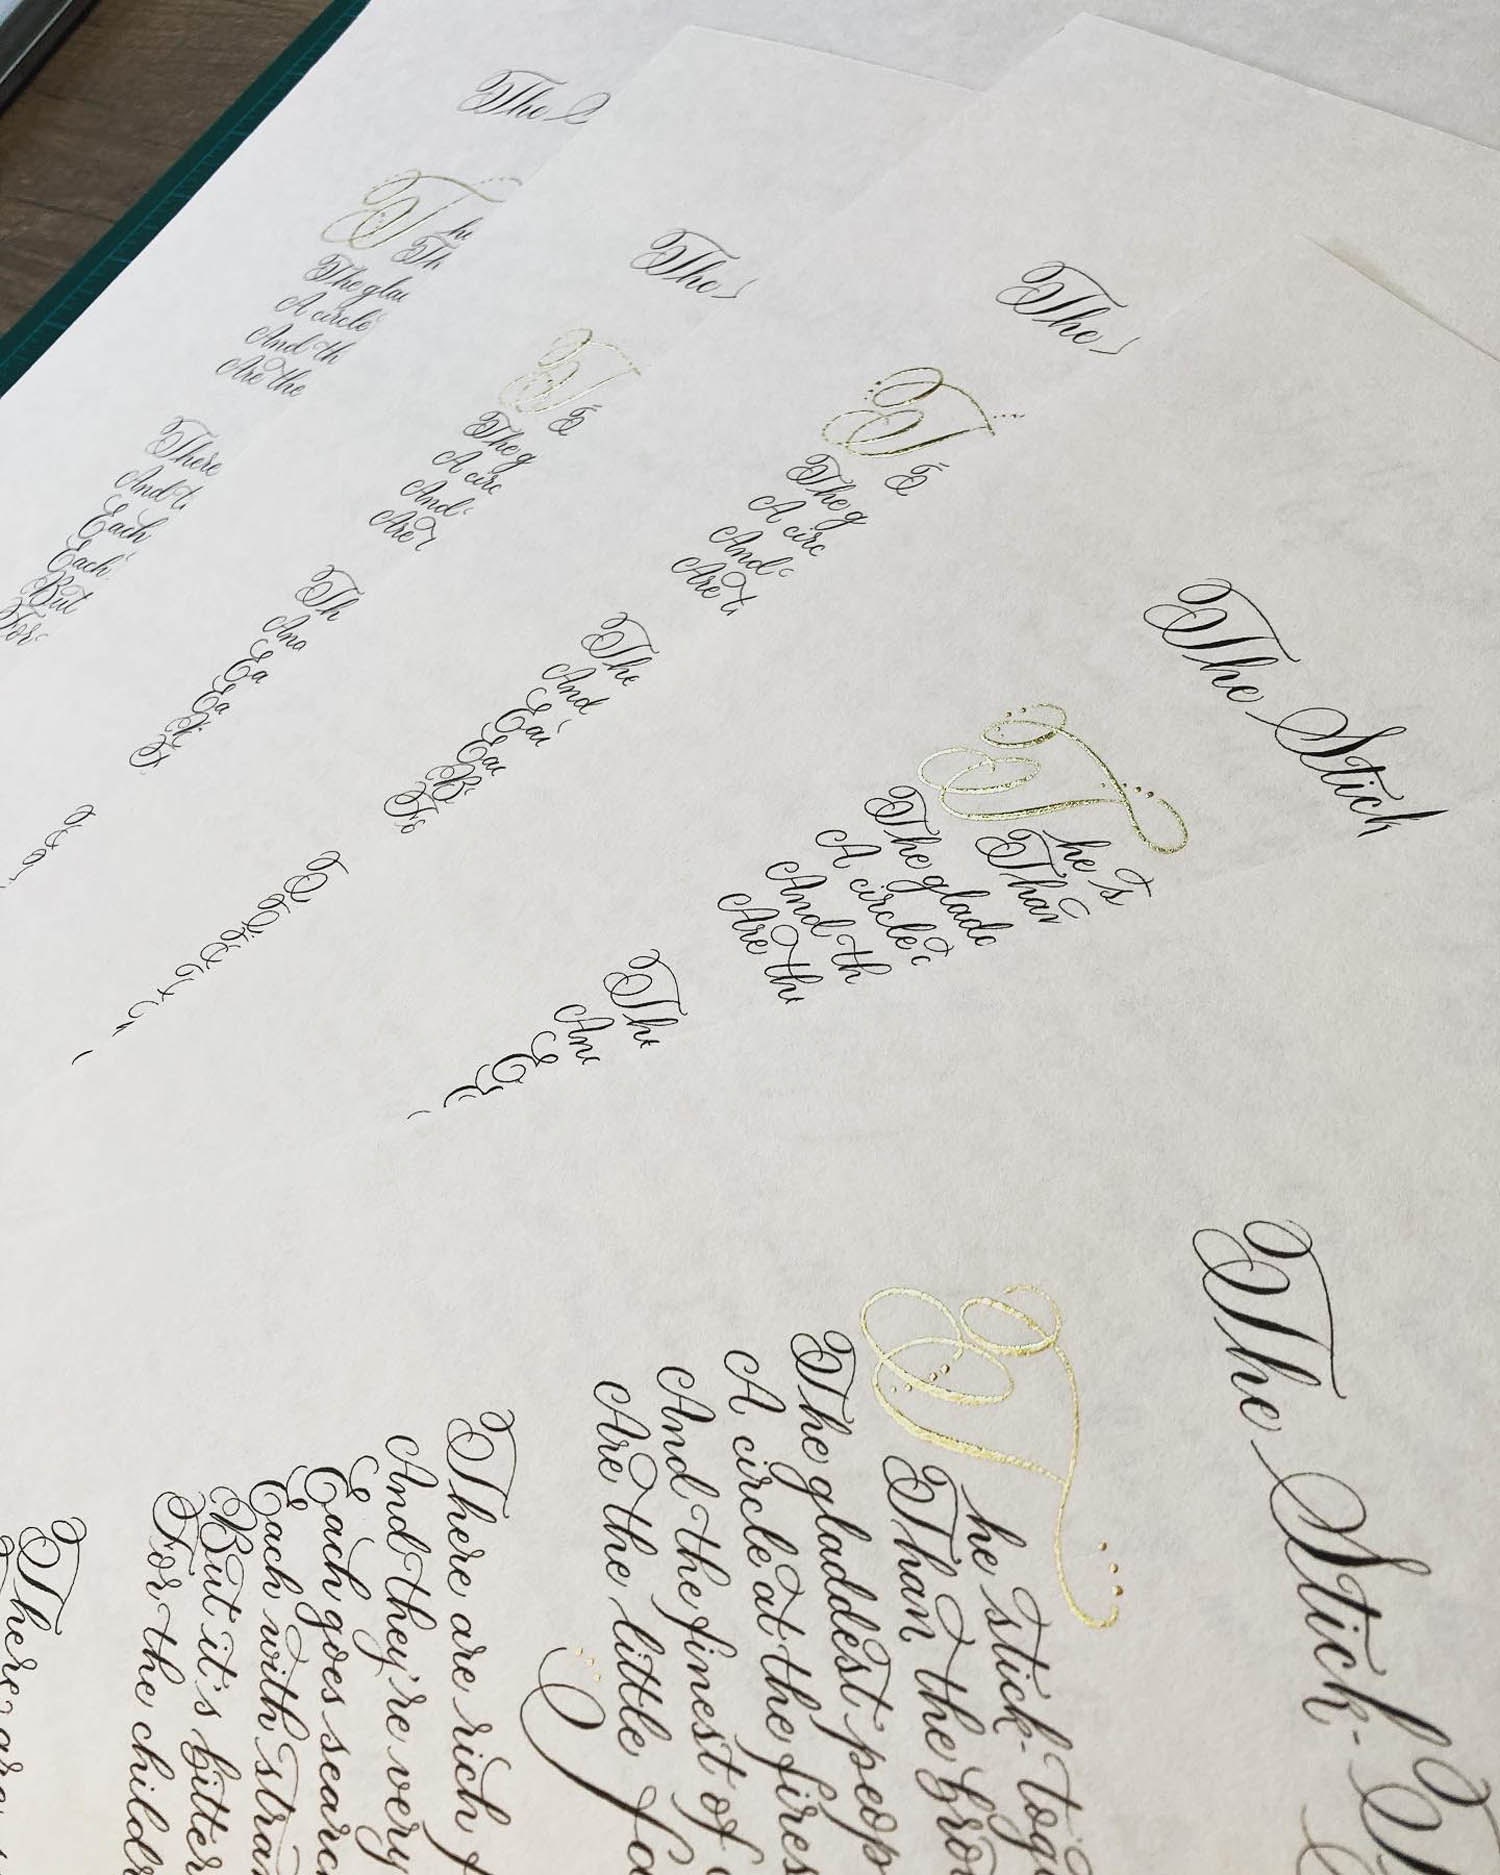 The S
The
Th
The glad
A circle
And th
Are the
There
And t
Each
Each
But
For
The
T
The g
A circ
And
Are t
Th
And
Ea
Ea
The
T
The g
A circ
And
Are t
The
And
Eac
Eac
B
Fo
The Stick
The s
Than
The gladd
A circle
And th
Are the
The
And
E
The Stick-T
The stick-toge
Than the grou
The gladdest peop
A circle at the fires
And the finest of
Are the little fa
There are rich f
And they're very
Each goes search
Each with stran
But it's bitter
For the childr
There are